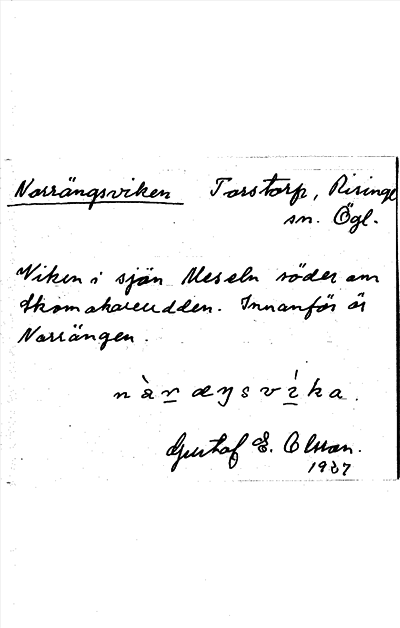 Norrängsviken Torstorp, Risinge
sn. Ögl.
Viken i sjön Meseln söder om
Skomakareudden. Innanför är
Norrängen.
Gustaf E. Olsson.
1937